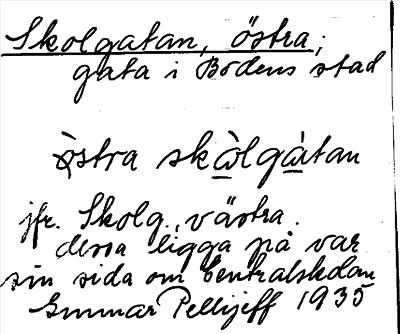 Skolgatan, östra;
gata i Bodens stad
òstra skàlgàtan
jfr. Skolg., västra.
dessa ligga på var
sin sida om Centralskolan
Gunnar Pellijeff 1935